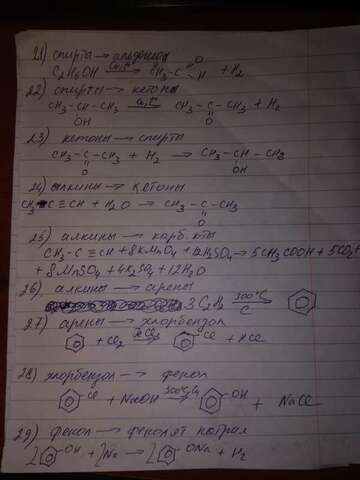 21) спирты → альдегиды
C2H5OH —Cu,t°→ CH3-C O H + H2
22) спирты → кетоны
CH3-CH-CH3 —Cu,t°→ CH3-C-CH3 + H2
OH O
23) кетоны → спирты
CH3-C-CH3 + H2 → CH3-CH-CH3
O OH
24) алкины → кетоны
CH3-C≡CH + H2O → CH3-C-CH3
O
25) алкины → карб. к-ты
CH3-C≡CH + 8KMnO4 + 12H2SO4 → 5CH3COOH + 5CO2↑
+ 8MnSO4 + 4K2SO4 + 12H2O
26) алкины → арены
3C2H2 —300°C, C→
27) арены → хлорбензол
+ Cl2 —FeCl3→ Cl + HCl
28) хлорбензол → фенол
Cl + NaOH → OH + NaCl
29) фенол → фенолят натрия
2 OH + 2Na → 2 ONa + H2